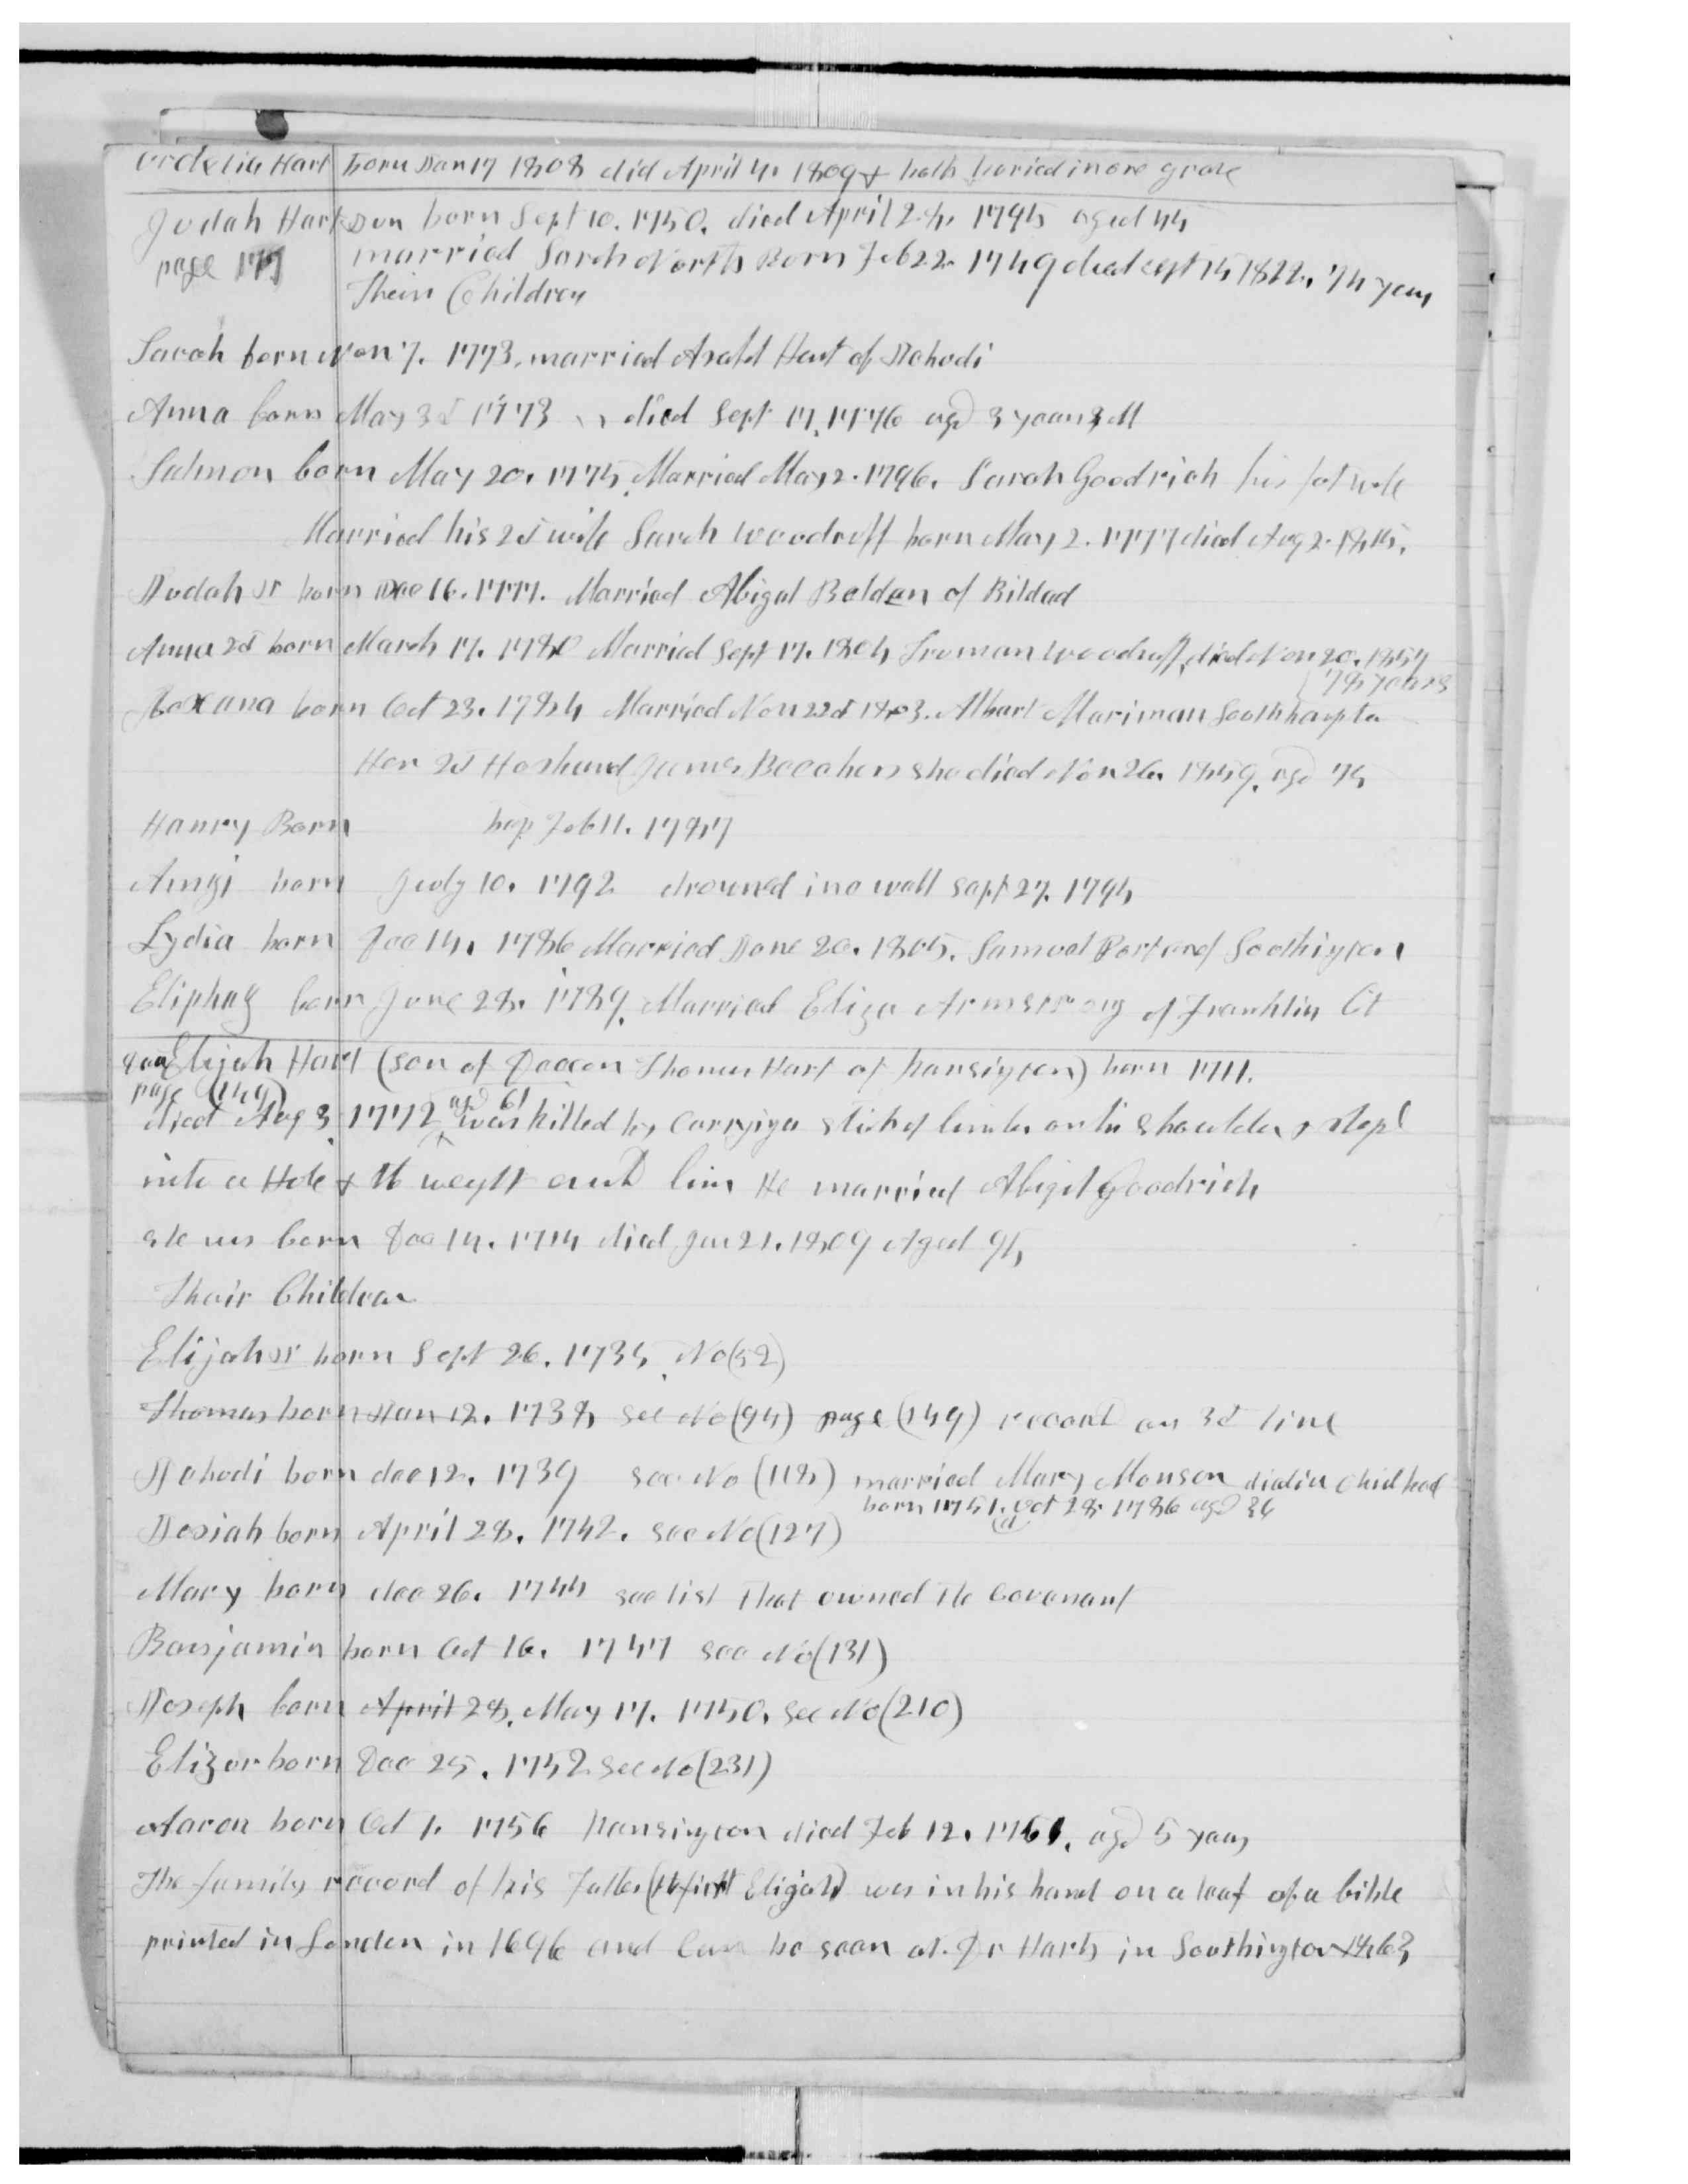 Cordelia Hart born Jan 17 1808 did April 4. 1809 & both buried in one grave
Judah Hart Jun born Sept 10. 1750. died April 24. 1795 aged 44
page 177 married Sarah North Born Feb 22. 1749 died sept 15 1822. 74 years
Their Children
Sarah born Nov 7. 1773. married Asahel Hart of Jehudi
Anna born May 3d 1773 died Sept 17. 1776 agd 3 years 3 M
Salmon born May 20. 1775. Married May 2. 1796. Sarah Goodrich his fst wife
Married his 2d wife Sarah Woodruff born May 2. 1777 died Aug 2. 1845.
Judah Jr born Dec 16. 1777. Married Abigal Belden of Bildad
Anna 2d born March 17. 1780 Married Sept 17. 1804 Truman Woodruff, died Nov 20. 1857
78 years
Roxana born Oct 23. 1784 Married Nov 22d 1803. Albart Mariman Southhampta
Her 2d Hosband James Beechers she died Nov 26. 1859. agd 75
Henry Born bap Feb 11. 1787
Amzi born July 10. 1792 drowned in a well Sept 27. 1794
Lydia born Dec 14. 1786 Married June 20. 1805. Samuel Porter of Soothigton
Eliphaz born June 28. 1789. Married Eliza Armstrong of Franklin Ct
Elijah Hart (son of Deacon Thomas Hart of Kensigton) born 1711.
page (149)
agd 61
died Aug 3, 1772 was killed by carryiga stick of timber on his shoulder & stept
into a Hole & the weyht crusd him He married Abigil Goodrich
she was born Dec 14. 1714 died Jan 21. 1809 Aged 95
Their Children
Elijah Jr born Sept 26. 1735. No (52)
Thomas born Jan 12. 1738 see No (94) page (149) record on 3d line
Jehudi born dec 12. 1739 see No (118) married Mary Monson died in Chidbed
born 1751. oct 28. 1786 agd 36
Josiah born April 28. 1742. see No (127)
Mary born dec 26. 1744 see list that owned the Covenant
Benjamin born Oct 16. 1747 see No (131)
Joseph born April 28. May 17. 1750. see No (210)
Elizur born Dec 25. 1752 see No (231)
Aaron born Oct 1. 1756 Kensigton died Feb 12. 1761. agd 5 years
The family record of his Father (the first Elijah) was in his hand on a leaf of a bible
printed in London in 1696 and can be seen at Dr Harts in Southigton 1863